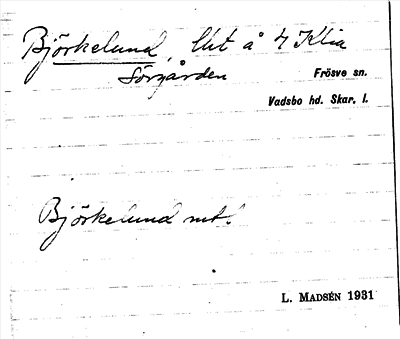 Björkelund, lht å 4 Klia
Sörgården
Frösve sn.
Vadsbo hd. Skar. l.
Björkelund mt.
L. MADSÉN 1931